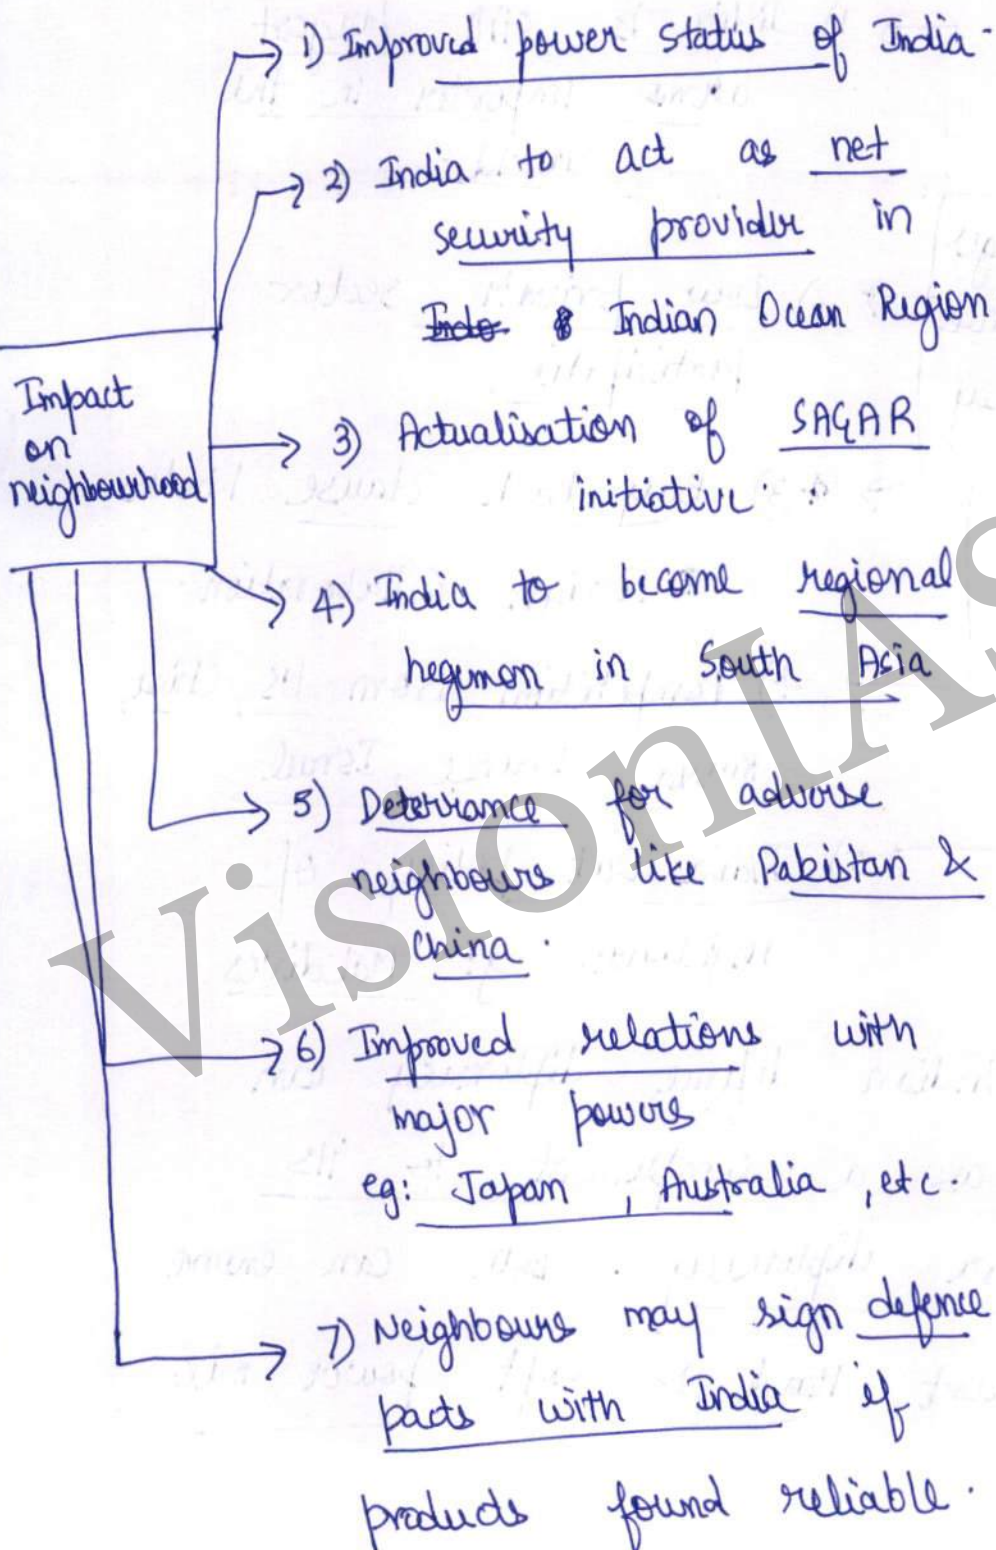 1) Improved power status of India.
2) India to act as net
security provider in
Indo Indian Ocean Region
Impact
on
neighbourhood
3) Actualisation of SAGAR
initiative.
4) India to become regional
hegemon in South Asia
5) Deterrance for adverse
neighbours like Pakistan &
China.
6) Improved relations with
major powers
eg: Japan, Australia, etc.
7) Neighbours may sign defence
pacts with India if
products found reliable.
VisionIAS